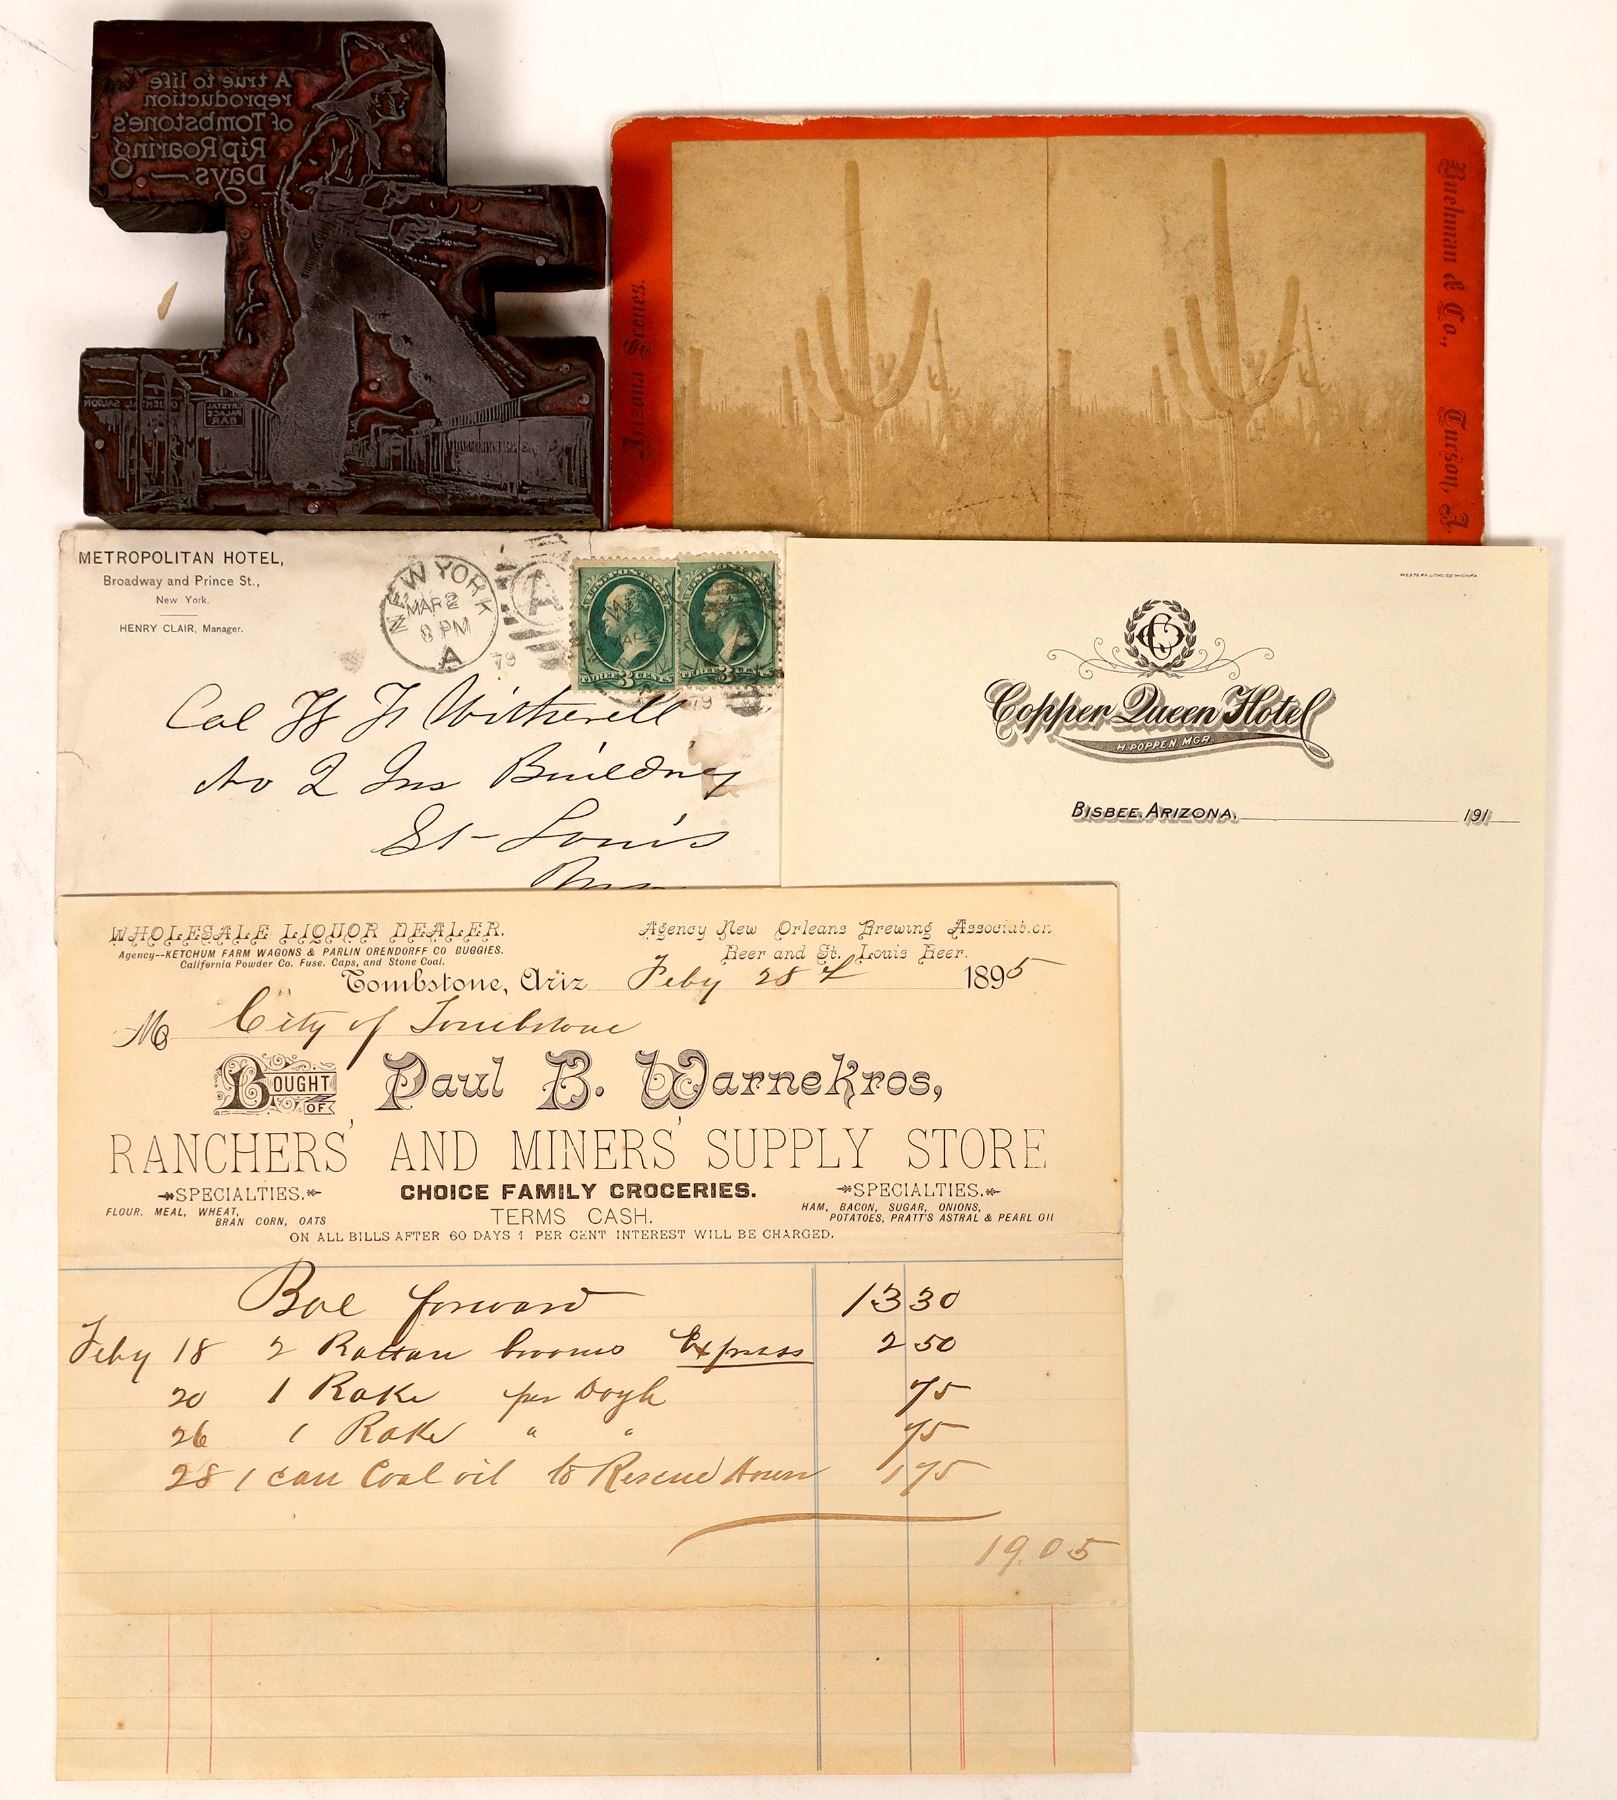 A true to life
reproduction
of Tombstone's
Rip Roaring
Days
ORIENTAL SALOON
CRYSTAL
PALACE
BAR
Arizona Scenes.
Buehman & Co., Tucson, A.
METROPOLITAN HOTEL,
Broadway and Prince St.,
New York.
HENRY CLAIR, Manager.
NEW YORK
MAR 2
8 PM
A
79
A
THREE 3 CENTS
THREE 3 CENTS
Col
Witherell
No 2 Ins Building
St Louis
WESTERN LITHO. CO. WICHITA
CQ
Copper Queen Hotel
H. POPPEN, MGR.
BISBEE, ARIZONA, 191
WHOLESALE LIQUOR DEALER.
Agency--KETCHUM FARM WAGONS & PARLIN ORENDORFF CO BUGGIES.
California Powder Co. Fuse. Caps, and Stone Coal.
Agency New Orleans Brewing Association
Beer and St. Louis Beer.
Tombstone, Ariz Feby 28th 1895
M City of Tombstone
BOUGHT OF Paul B. Warnekros,
RANCHERS' AND MINERS' SUPPLY STORE
SPECIALTIES. CHOICE FAMILY GROCERIES. SPECIALTIES.
FLOUR. MEAL, WHEAT,
BRAN CORN, OATS
TERMS CASH.
HAM, BACON, SUGAR, ONIONS,
POTATOES, PRATT'S ASTRAL & PEARL OIL
ON ALL BILLS AFTER 60 DAYS 1 PER CENT INTEREST WILL BE CHARGED.
Bal forward 13 30
Feby 18 2 Rattan brooms Express 2 50
20 1 Rake per Doyle 75
26 1 Rake " " 75
28 1 can Coal oil to Rescue House 1 75
19.05